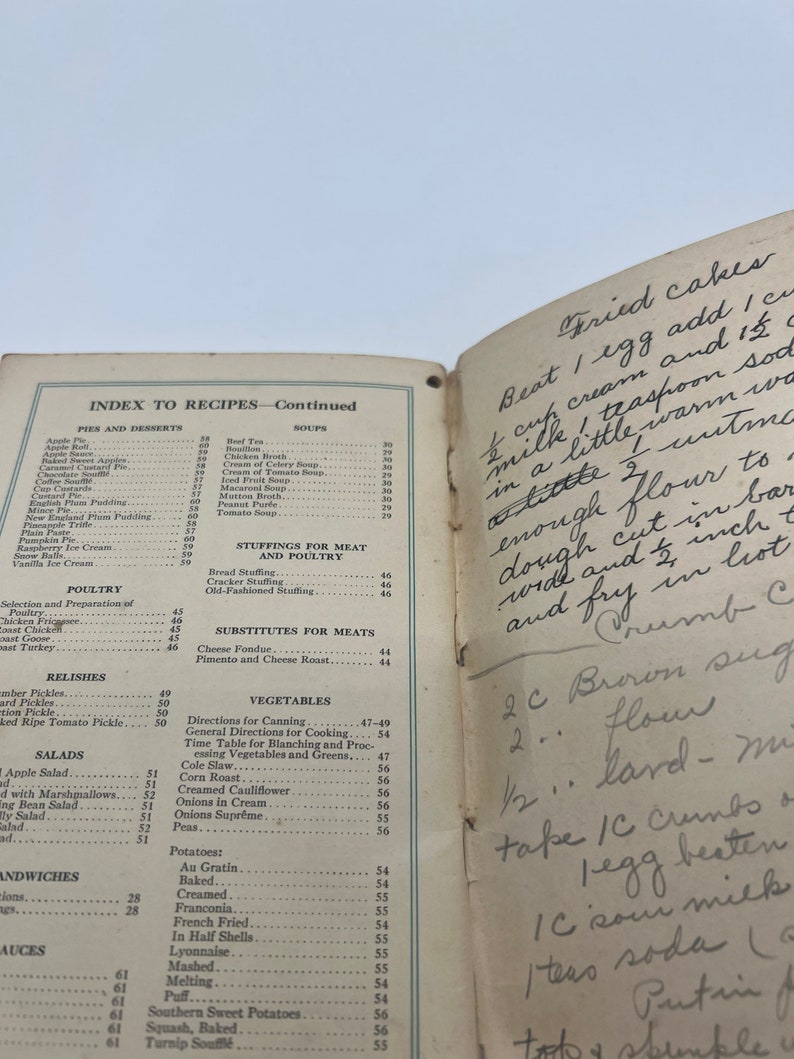 INDEX TO RECIPES—Continued
PIES AND DESSERTS
Apple Pie 58
Apple Roll 60
Apple Sauce 59
Baked Sweet Apples 59
Caramel Custard Pie 58
Chocolate Soufflé 59
Coffee Soufflé 57
Cup Custards 57
Custard Pie 57
English Plum Pudding 60
Mince Pie 58
New England Plum Pudding 60
Pineapple Trifle 58
Plain Paste 57
Pumpkin Pie 60
Raspberry Ice Cream 59
Snow Balls 59
Vanilla Ice Cream 59
POULTRY
Selection and Preparation of
Poultry 45
Chicken Fricassee 46
Roast Chicken 45
oast Goose 45
oast Turkey 46
RELISHES
umber Pickles 49
ard Pickles 50
ction Pickle 50
ked Ripe Tomato Pickle 50
SALADS
d Apple Salad 51
ad 51
d with Marshmallows 52
ing Bean Salad 51
lly Salad 51
Salad 52
ad 51
ANDWICHES
tions 28
ngs 28
AUCES
61
61
61
61
61
SOUPS
Beef Tea 30
Bouillon 29
Chicken Broth 30
Cream of Celery Soup 30
Cream of Tomato Soup 30
Iced Fruit Soup 30
Macaroni Soup 30
Mutton Broth 30
Peanut Purée 29
Tomato Soup 29
STUFFINGS FOR MEAT
AND POULTRY
Bread Stuffing 46
Cracker Stuffing 46
Old-Fashioned Stuffing 46
SUBSTITUTES FOR MEATS
Cheese Fondue 44
Pimento and Cheese Roast 44
VEGETABLES
Directions for Canning 47-49
General Directions for Cooking 54
Time Table for Blanching and Proc-
essing Vegetables and Greens 47
Cole Slaw 56
Corn Roast 56
Creamed Cauliflower 56
Onions in Cream 56
Onions Suprême 55
Peas 56
Potatoes:
Au Gratin 54
Baked 54
Creamed 55
Franconia 55
French Fried 54
In Half Shells 55
Lyonnaise 55
Mashed 55
Melting 54
Puff 54
Southern Sweet Potatoes 56
Squash, Baked 56
Turnip Soufflé 55
Fried cakes
Beat 1 egg add 1 cu
½ cup cream and 1½ c
milk 1 teaspoon sod
in a little warm wa
a little ½ nutm
enough flour to
dough cut in bar
wide and ½ inch t
and fry in hot
Crumb C
2 C Brown sug
2 .. flour
½ .. lard - mi
take 1C crumbs o
1 egg beaten
1C sour milk
1 teas soda (
Put in p
top & sprinkle